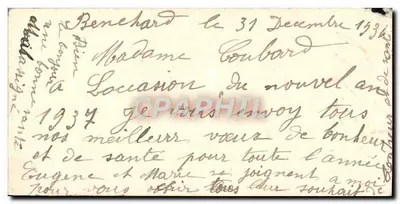 Benchard le 31 Decembre 1936
Madame Coubard
a L'occasion du nouvel an
1937 Je vous envoy tous
nos meilleurs vœux de bonheur
et de santé pour toute l'année
Eugene et Marie se joignent a moi
pour vous offrir tous leur souhait
Bien
le bonjour
une bonne santé
CPARAMA